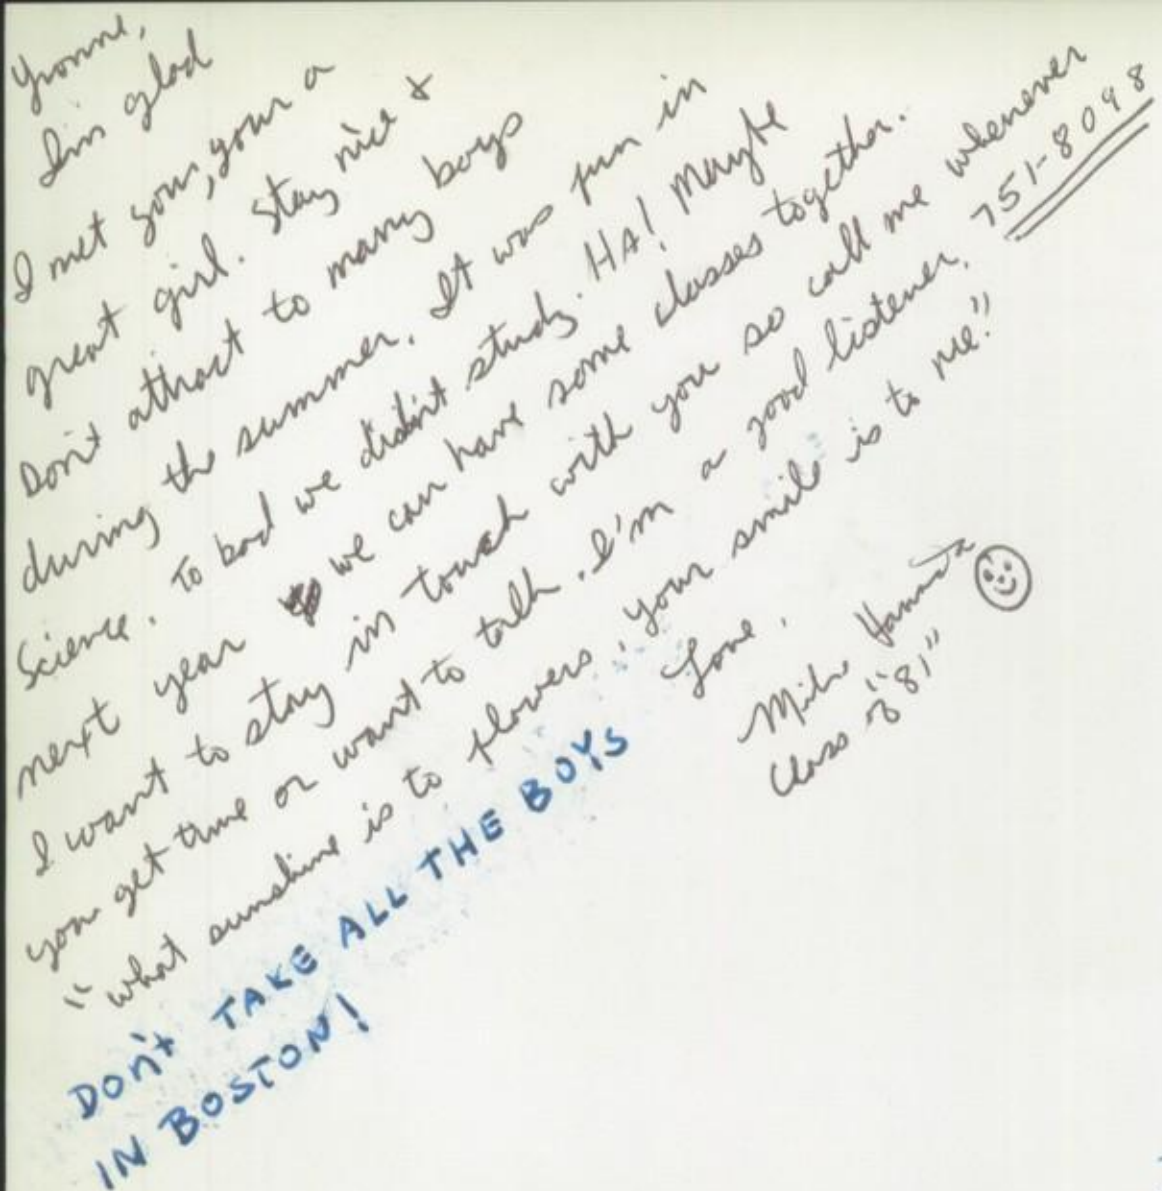 Yvonne,
I'm glad
I met your, your a
great girl. Stay nice &
Don't attract to many boys
during the summer. It was fun in
Science. To bad we didn't study. HA! Maybe
next year we can have some classes together.
I want to stay in touch with you so call me whenever
you get time or want to talk. I'm a good listener. 751-8098
"What sunshine is to flowers, your smile is to me."
Love,
Mike
Class of "81"
DON'T TAKE ALL THE BOYS
IN BOSTON!